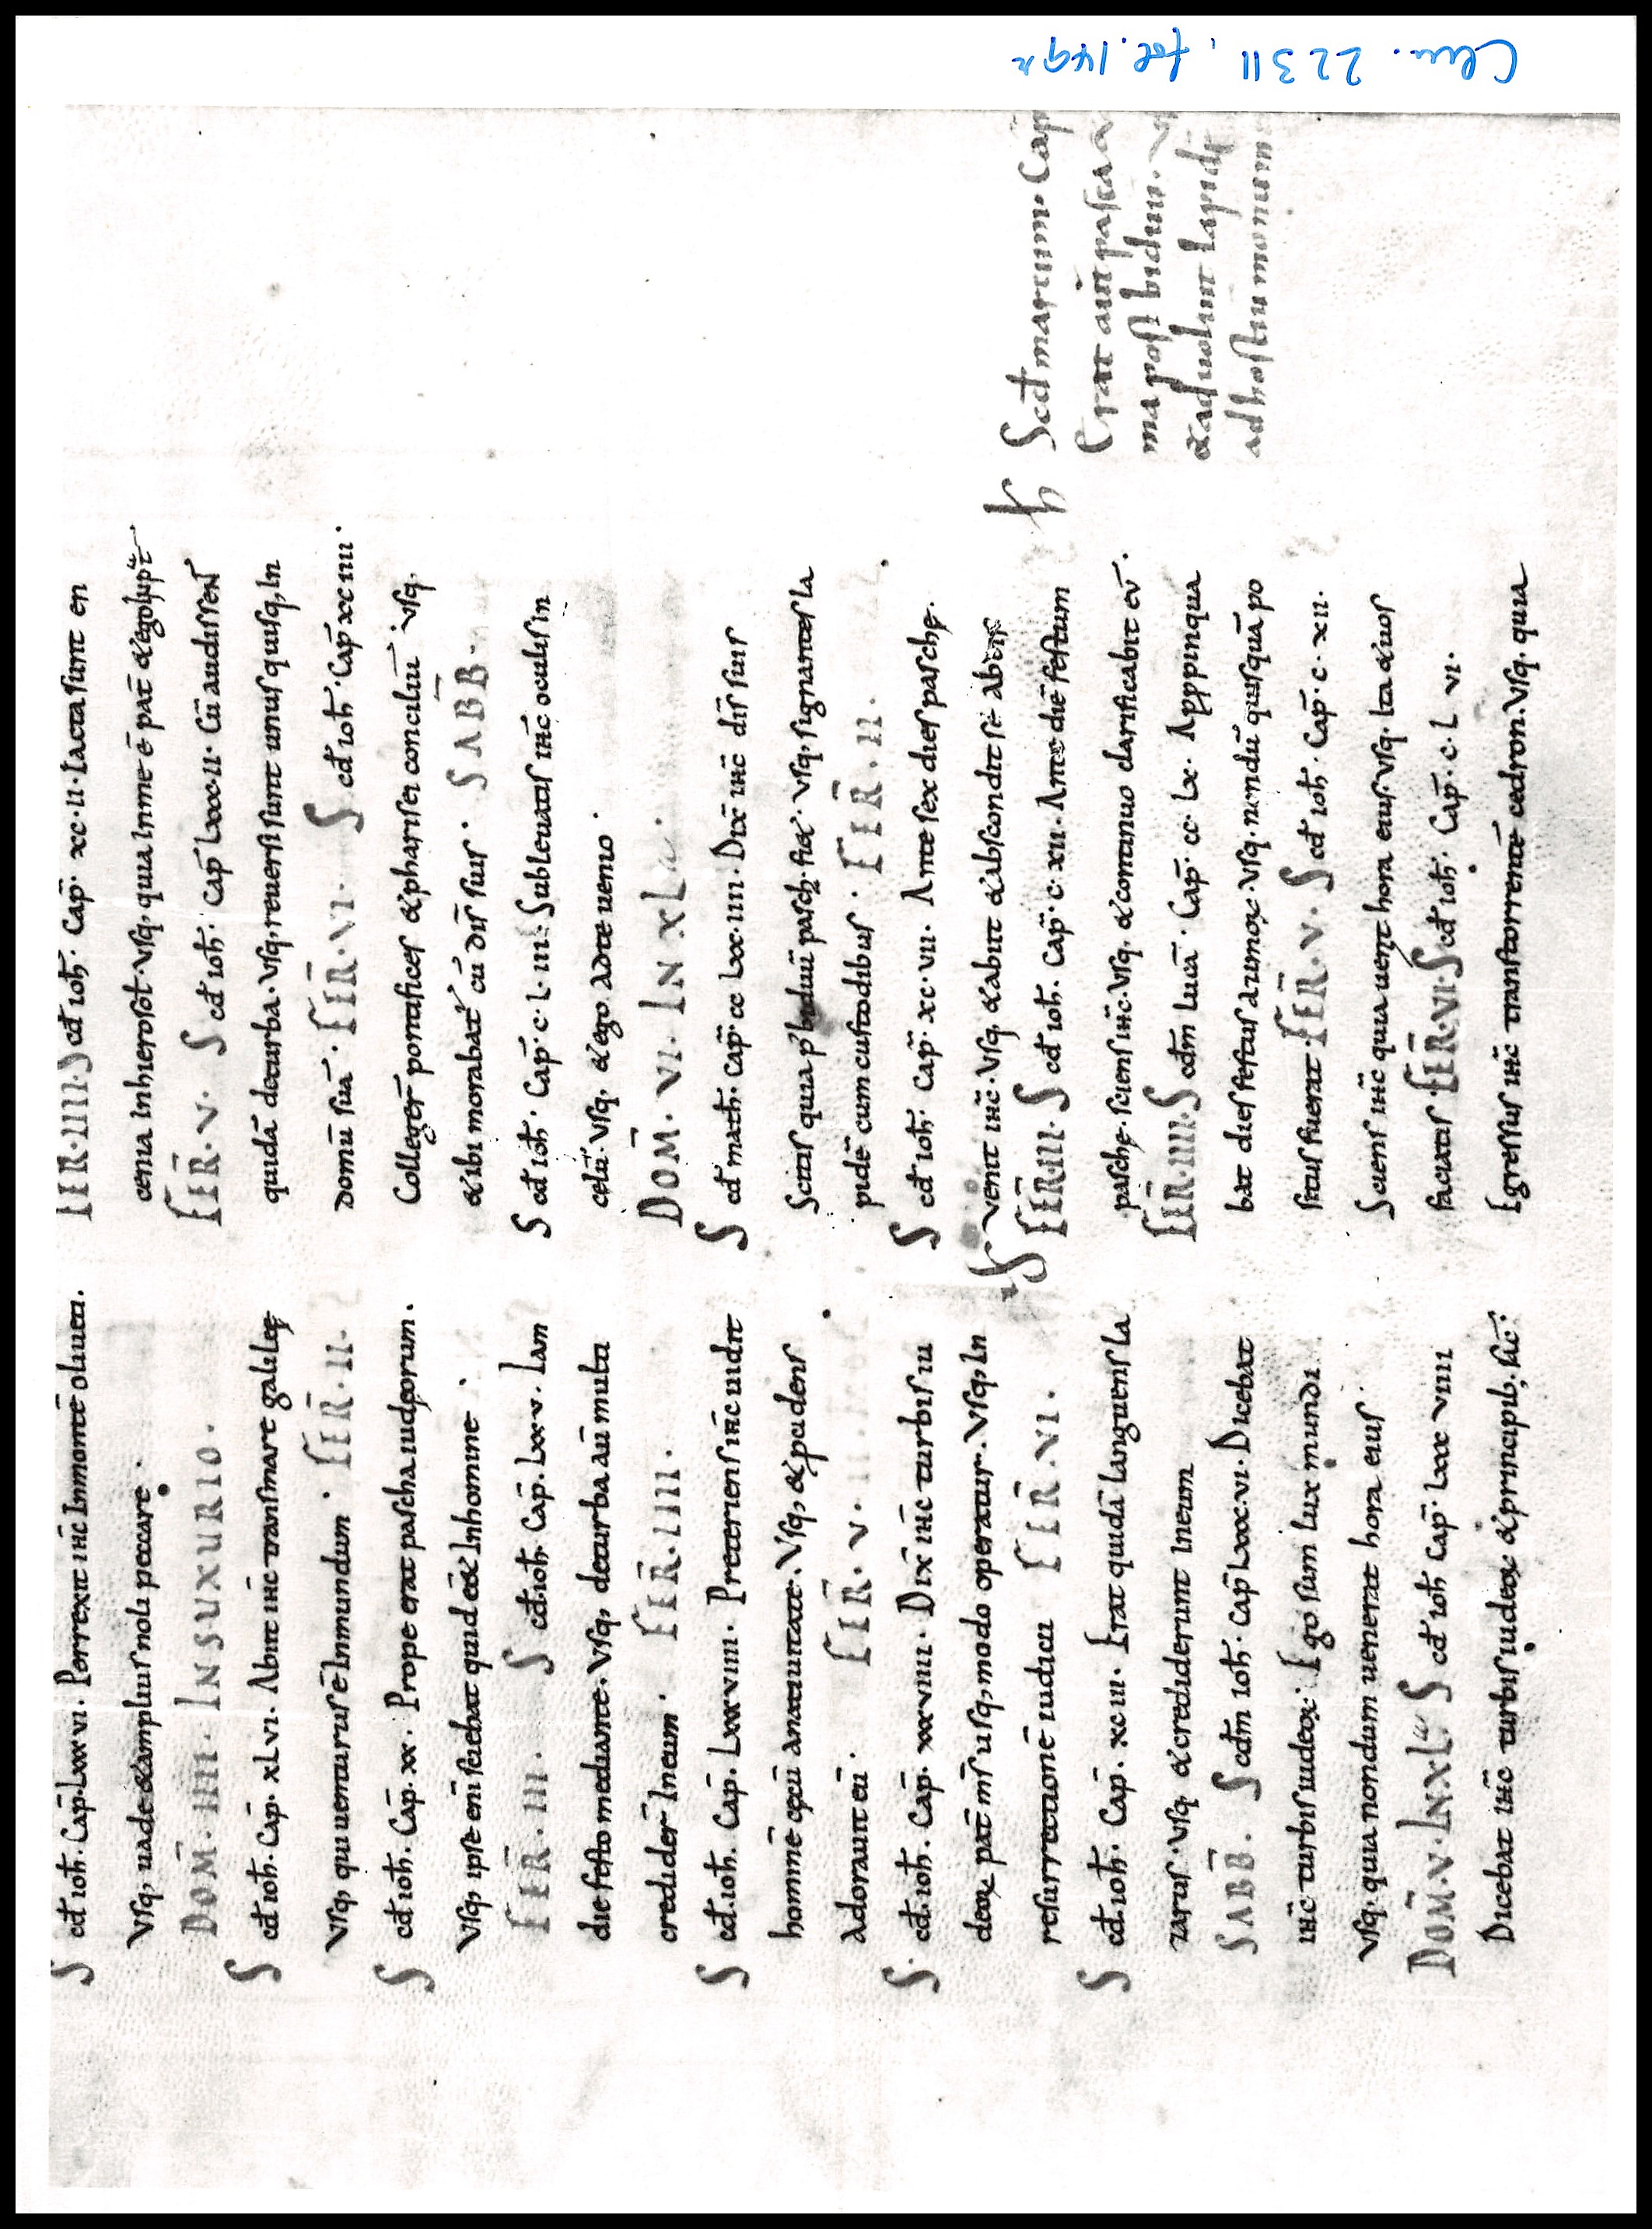 Clm. 22311, fol. 149r
S cd ioh̄. Cap̄. Lxxx vi. Perrexit ih̄c In montē oliueti.
Vsq, uade & amplius noli peccare.
DOM̄. IIII. IN SUXURIO.
S cd ioh̄. Cap̄. xLvi. Abiit ih̄c trans mare galileę
Vsq, qui uenturus ē In mundum. FER̄. II.
S cd ioh̄. Cap̄. xx. Prope erat pascha iudęorum.
Vsq, ipse enī sciebat quid eēt In homine.
FER̄. III. S cd ioh̄. Cap̄. Lxxv. Iam
die festo mediante. Vsq, de turba aū multi
credider̄ In eum. FER̄. IIII.
S cd ioh̄. Cap̄. Lxxxviiii. Preteriens ih̄c uidit
hominē cęcū a natiuitate. Vsq, & procidens
adorauit eū. FER̄. V.
S cd ioh̄. Cap̄. xxxviiii. Dix̄ ih̄c turbis iu
deoꝝ pat̄ ms̄ usq, modo operatur. Vsq, In
resurrectionē iudicii FER̄. VI.
S cd ioh̄. Cap̄. xc iii. Erat quidā languens la
zarus. Vsq, & crediderunt In eum
SABB̄. S cdm̄ ioh̄. Cap̄ Lxxx.vi. Dicebat
ih̄c turbis iudeoꝝ. Ego sum lux mundi
Vsq, quia nondum uenerat hora eius.
DOM̄. V. IN XL S cd ioh̄ Cap̄. Lxxx viiii
Dicebat ih̄c turbis iudeoꝝ & principib; sic̄:
FER̄. IIII. S cd ioh̄. Cap̄. xc.ii. Facta sunt en
cenia In hierosol̄. Vsq, quia In me ē pat̄ & ego In pat̄
FER̄. V. S cd ioh̄. Cap̄ Lxxx.ii. Cū audissent
quidā de turba. Vsq, reuersi sunt unusquisq, In
domū suā. FER̄. VI. S cd ioh̄. Cap̄ xc iiii.
Colleger̄ pontifices & pharisei conciliū. Vsq,
& ibi morabat̄ cū dis̄ suis. SABB̄.
S cd ioh̄. Cap̄. c.L.iii. Subleuatis ih̄c oculis in
cęlū. Vsq, & ego ad te uenio.
DOM̄. VI. IN XL
S cd math̄. Cap̄. cc Lxx.iiii. Dix̄ ih̄c dis̄ suis
Scitis quia p' biduū pasch̨ fiet. Vsq, signantes la
pidē cum custodibus. FER̄. II.
S cd ioh̄. Cap̄. xc.vii. Ante sex dies paschę.
Venit ih̄c. Vsq, & abiit & abscondit se ab eis
FER̄. III. S cd ioh̄. Cap̄. c.xii. Ante diē festum
paschę. sciens ih̄c. Vsq, & continuo clarificabit eū.
FER̄. IIII. S cdm̄ lucā. Cap̄. cc.Lx. Appropinqua
bat dies festus azimoꝝ. Vsq, nondū quisquā po
situs fuerat. FER̄. V. S cd ioh̄. Cap̄. c.xii.
Sciens ih̄c quia uenit hora eius. Vsq, Ita & uos
faciatis. FER̄. VI. S cd ioh̄. Cap̄. c.L vi.
Egressus ih̄c trans torrentē cedron. Vsq, quia
h Scd marcum. Cap̄
Erat aūt pascha
ma post biduum.
& aduolut lapidē
ad hostiu monum